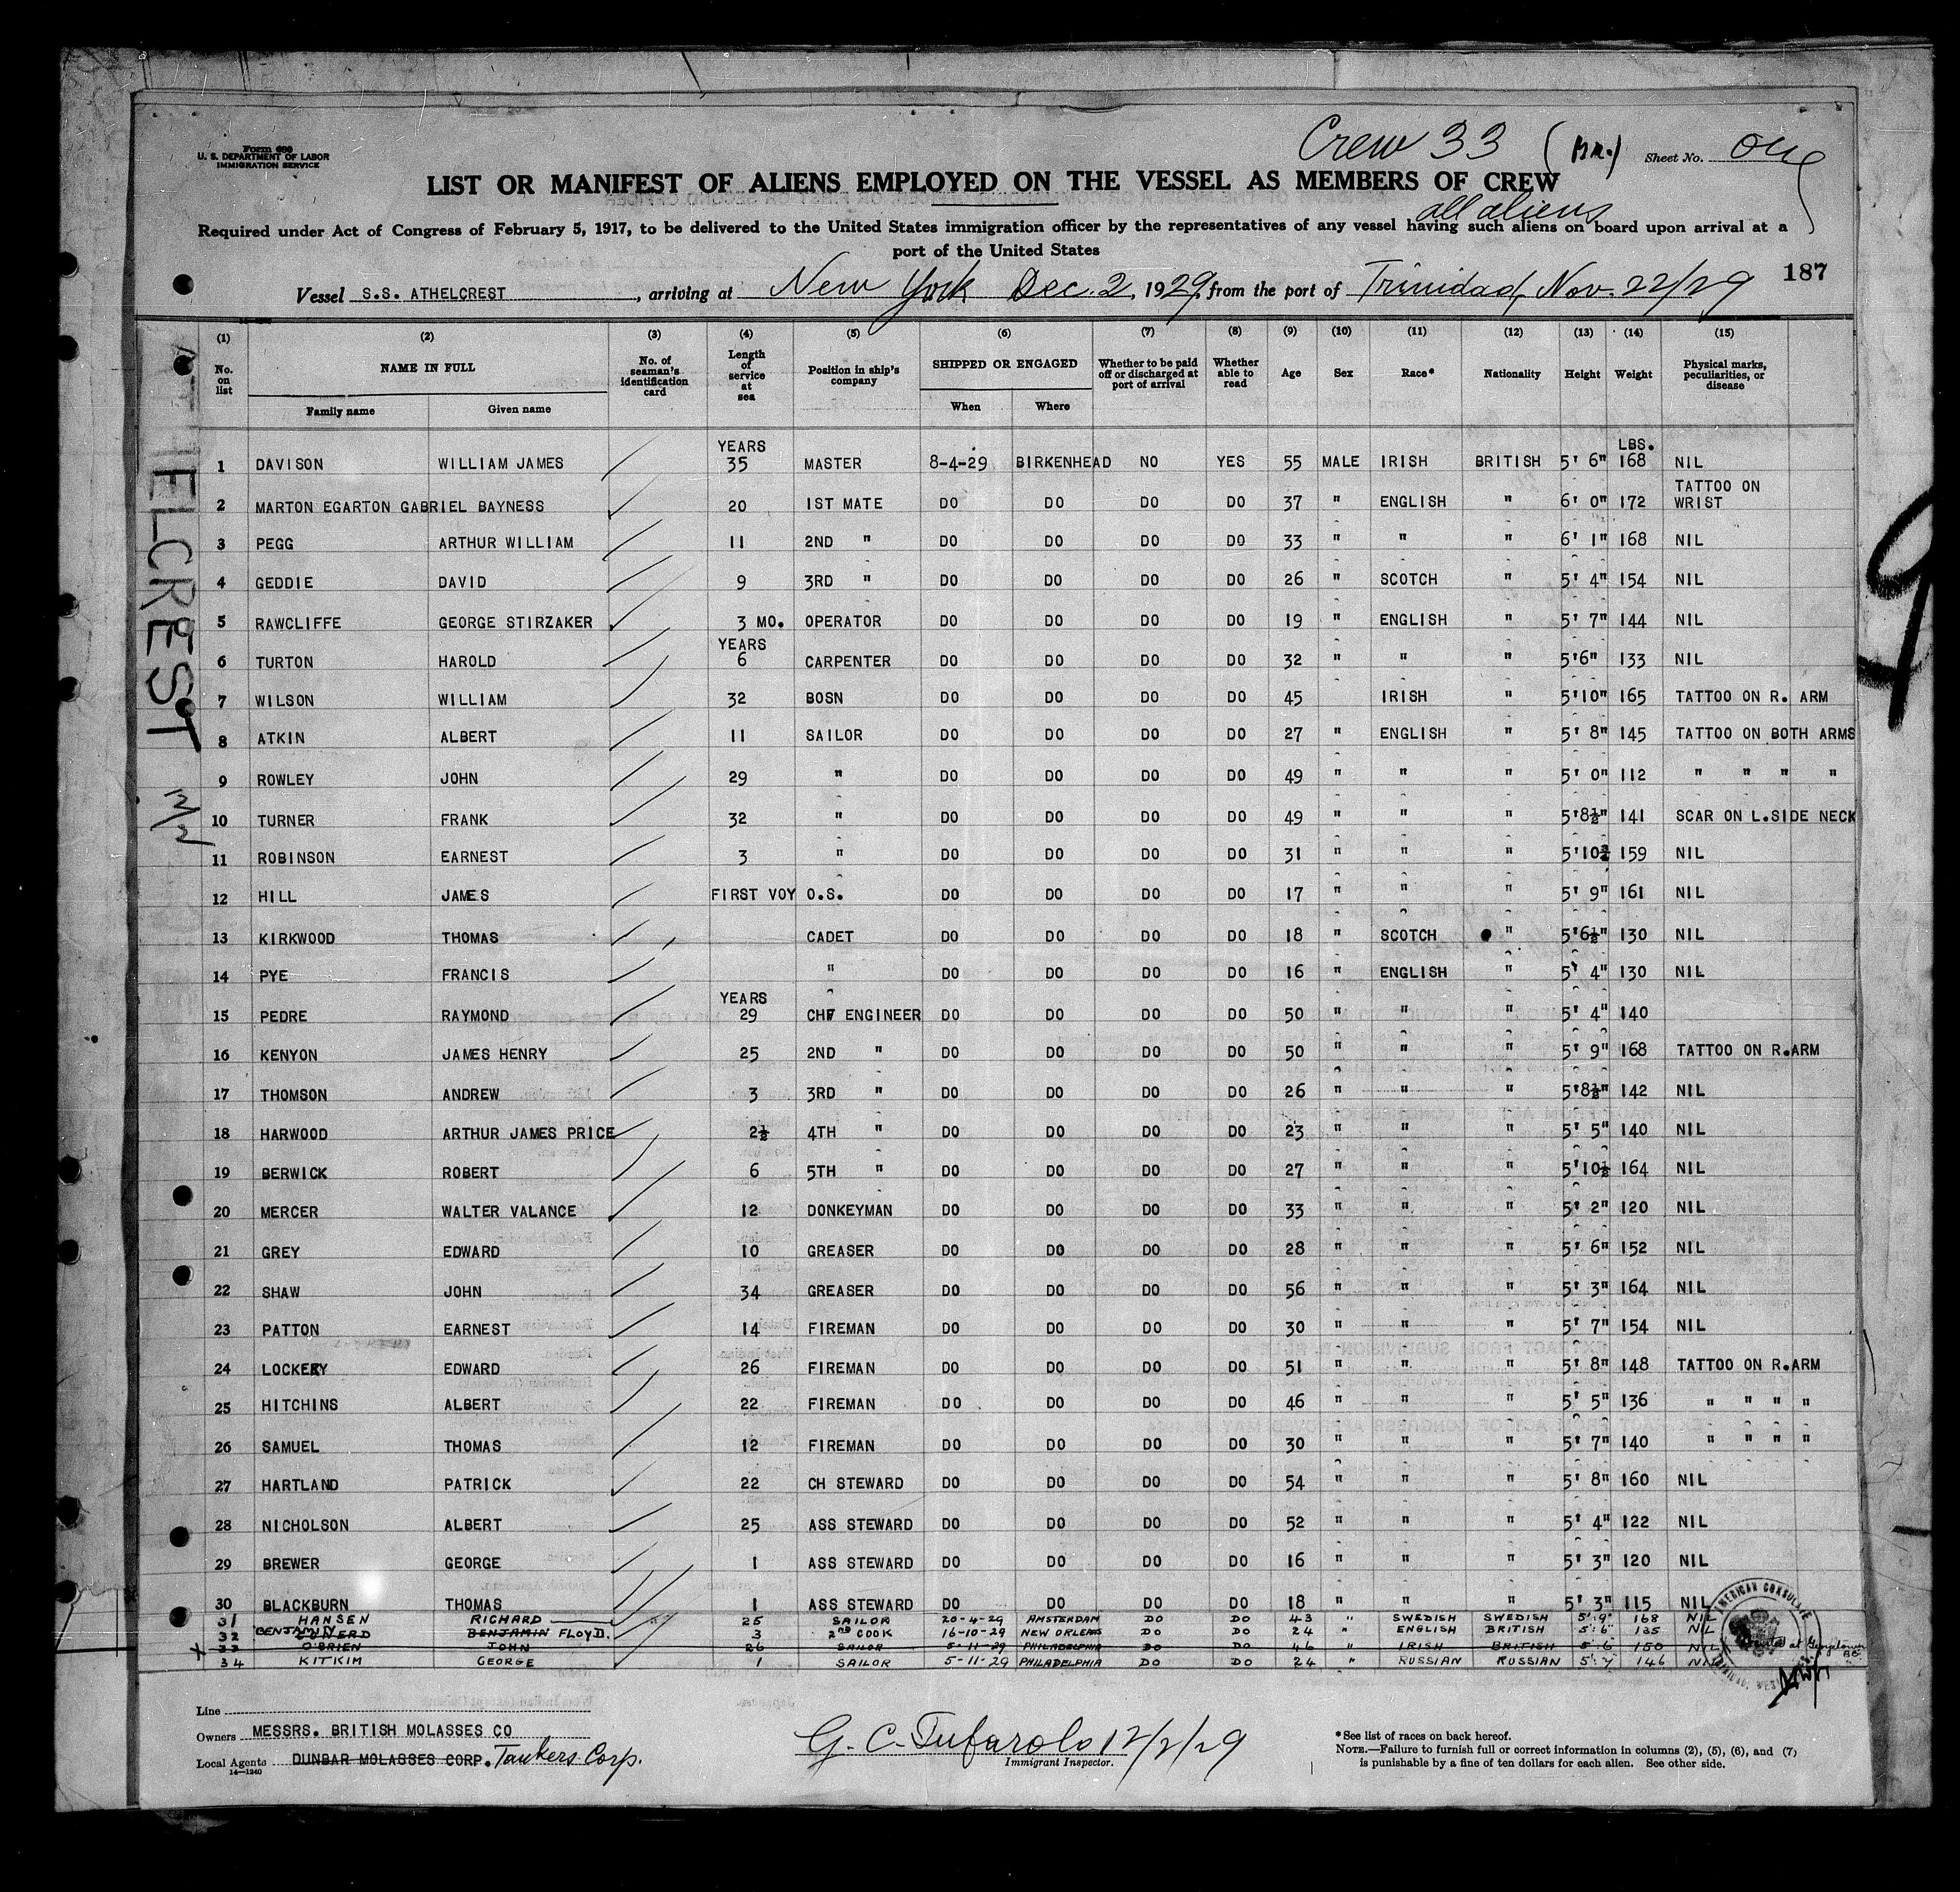 Form 680
U. S. DEPARTMENT OF LABOR
IMMIGRATION SERVICE
Crew 33 (Br.)
Sheet No. One
LIST OR MANIFEST OF ALIENS EMPLOYED ON THE VESSEL AS MEMBERS OF CREW
all aliens
Required under Act of Congress of February 5, 1917, to be delivered to the United States immigration officer by the representatives of any vessel having such aliens on board upon arrival at a
port of the United States
187
Vessel S.S. ATHELCREST, arriving at New York Dec. 2, 1929, from the port of Trinidad, Nov. 22/29
(1) (2) (3) (4) (5) (6) (7) (8) (9) (10) (11) (12) (13) (14) (15)
No. on list NAME IN FULL Family name Given name No. of seaman's identification card Length of service at sea Position in ship's company SHIPPED OR ENGAGED When Where Whether to be paid off or discharged at port of arrival Whether able to read Age Sex Race* Nationality Height Weight Physical marks, peculiarities, or disease
YEARS LBS.
1 DAVISON WILLIAM JAMES 35 MASTER 8-4-29 BIRKENHEAD NO YES 55 MALE IRISH BRITISH 5' 6" 168 NIL
2 MARTON EGARTON GABRIEL BAYNESS 20 1ST MATE DO DO DO DO 37 " ENGLISH " 6' 0" 172 TATTOO ON WRIST
3 PEGG ARTHUR WILLIAM 11 2ND " DO DO DO DO 33 " " " 6' 1" 168 NIL
4 GEDDIE DAVID 9 3RD " DO DO DO DO 26 " SCOTCH " 5' 4" 154 NIL
5 RAWCLIFFE GEORGE STIRZAKER 3 MO. OPERATOR DO DO DO DO 19 " ENGLISH " 5' 7" 144 NIL
YEARS
6 TURTON HAROLD 6 CARPENTER DO DO DO DO 32 " " " 5'6" 133 NIL
7 WILSON WILLIAM 32 BOSN DO DO DO DO 45 IRISH " 5'10" 165 TATTOO ON R. ARM
8 ATKIN ALBERT 11 SAILOR DO DO DO DO 27 " ENGLISH " 5' 8" 145 TATTOO ON BOTH ARMS
9 ROWLEY JOHN 29 " DO DO DO DO 49 " " " 5' 0" 112 " " " "
10 TURNER FRANK 32 " DO DO DO DO 49 " " " 5'8½" 141 SCAR ON L.SIDE NECK
11 ROBINSON EARNEST 3 " DO DO DO DO 31 " " " 5'10 159 NIL
12 HILL JAMES FIRST VOY O.S. DO DO DO DO 17 " " " 5' 9" 161 NIL
13 KIRKWOOD THOMAS CADET DO DO DO DO 18 " SCOTCH " 5'6½" 130 NIL
14 PYE FRANCIS " DO DO DO DO 16 " ENGLISH " 5' 4" 130 NIL
YEARS
15 PEDRE RAYMOND 29 CHF ENGINEER DO DO DO DO 50 " " " 5' 4" 140
16 KENYON JAMES HENRY 25 2ND " DO DO DO DO 50 " " " 5' 9" 168 TATTOO ON R.ARM
17 THOMSON ANDREW 3 3RD " DO DO DO DO 26 " " " 5'8½" 142 NIL
18 HARWOOD ARTHUR JAMES PRICE 2½ 4TH " DO DO DO DO 23 " " " 5' 5" 140 NIL
19 BERWICK ROBERT 6 5TH " DO DO DO DO 27 " " " 5'10½ 164 NIL
20 MERCER WALTER VALANCE 12 DONKEYMAN DO DO DO DO 33 " " " 5' 2" 120 NIL
21 GREY EDWARD 10 GREASER DO DO DO DO 28 " " " 5' 6" 152 NIL
22 SHAW JOHN 34 GREASER DO DO DO DO 56 " " " 5' 3" 164 NIL
23 PATTON EARNEST 14 FIREMAN DO DO DO DO 30 " " " 5' 7" 154 NIL
24 LOCKERY EDWARD 26 FIREMAN DO DO DO DO 51 " " " 5' 8" 148 TATTOO ON R.ARM
25 HITCHINS ALBERT 22 FIREMAN DO DO DO DO 46 " " " 5' 5" 136 " " " "
26 SAMUEL THOMAS 12 FIREMAN DO DO DO DO 30 " " " 5' 7" 140 " " " "
27 HARTLAND PATRICK 22 CH STEWARD DO DO DO DO 54 " " " 5' 8" 160 NIL
28 NICHOLSON ALBERT 25 ASS STEWARD DO DO DO DO 52 " " " 5' 4" 122 NIL
29 BREWER GEORGE 1 ASS STEWARD DO DO DO DO 16 " " " 5' 3" 120 NIL
30 BLACKBURN THOMAS 1 ASS STEWARD DO DO DO DO 18 " " " 5' 3" 115 NIL
31 HANSEN RICHARD 25 SAILOR 20-4-29 AMSTERDAM DO DO 43 " SWEDISH SWEDISH 5'.9" 168 NIL
32 BENJAMIN BENJAMIN FLOYD. 3 2ND COOK 16-10-29 NEW ORLEANS DO DO 24 " ENGLISH BRITISH 5'.6" 135 NIL
X 33 O'BRIEN JOHN 26 SAILOR 5-11-29 PHILADELPHIA DO DO 46 " IRISH BRITISH 5'.6 150 NIL at Georgetown BG
34 KITKIM GEORGE 1 SAILOR 5-11-29 PHILADELPHIA DO DO 24 " RUSSIAN RUSSIAN 5'.7 146 NIL
AMERICAN CONSULATE
TRINIDAD, WEST
Line
Owners MESSRS. BRITISH MOLASSES CO
Local Agents DUNBAR MOLASSES CORP. Tankers Corp.
14—1240
G. C. Tufarolo 12/2/29
Immigrant Inspector.
*See list of races on back hereof.
NOTE.—Failure to furnish full or correct information in columns (2), (5), (6), and (7)
is punishable by a fine of ten dollars for each alien. See other side.
ELCREST
12/2
9